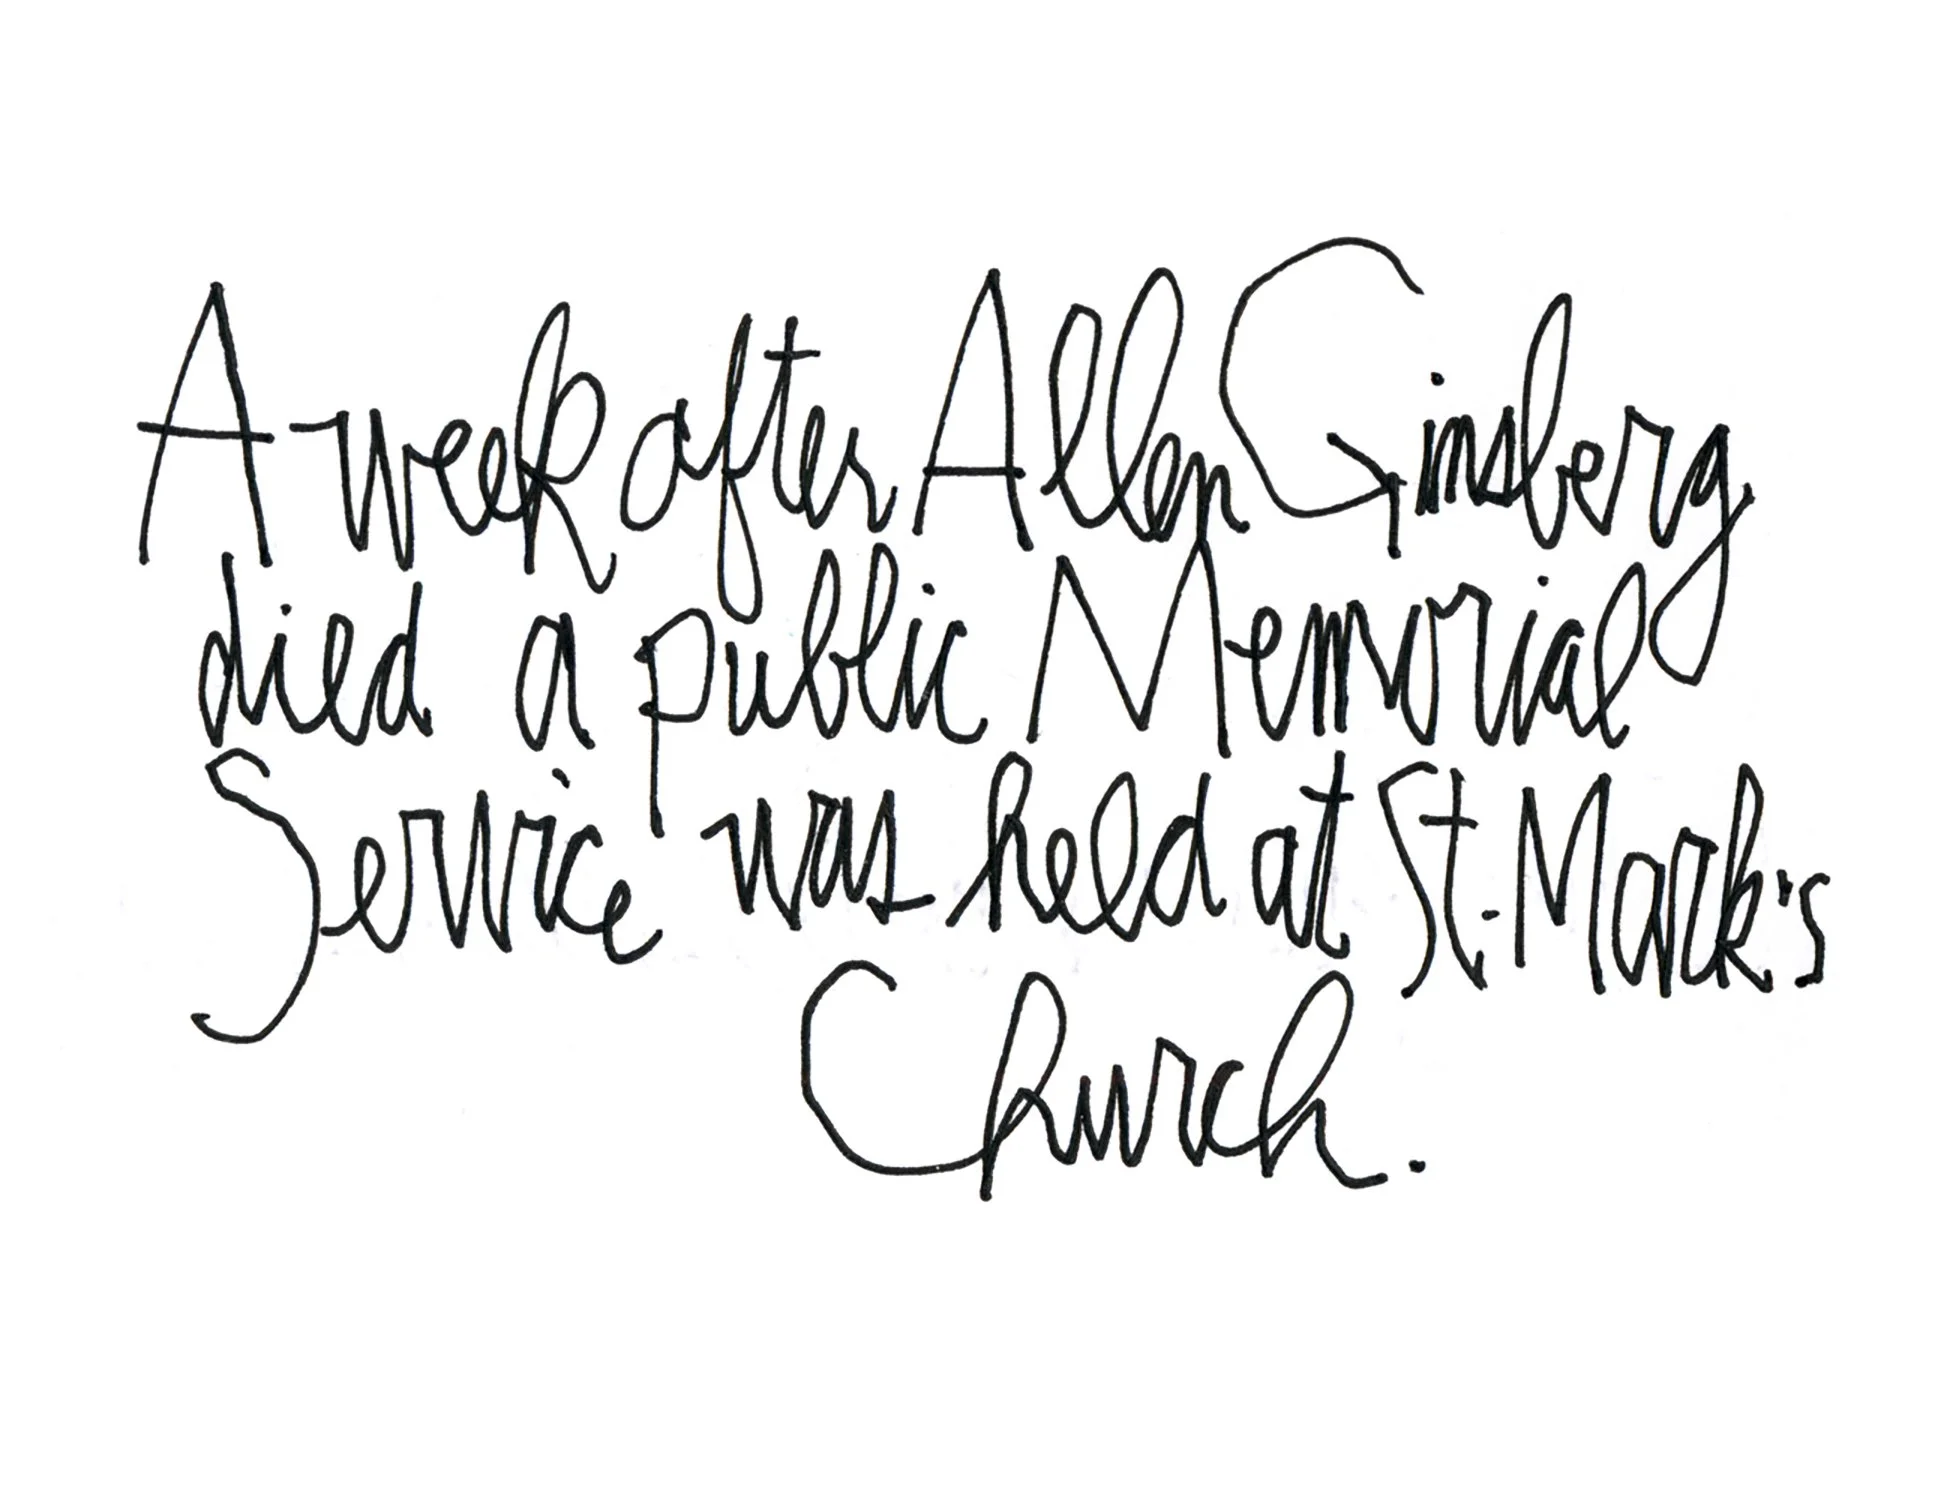 A week after Allen Ginsberg
died a public Memorial
Service was held at St. Mark's
Church.